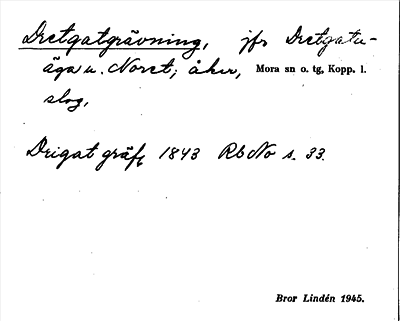 Dretgatgrävning, jfr Dretgatu-
äga u. Noret; åker, Mora sn o. tg, Kopp. l.
slog,
Drigat gräf, 1843 RbNo s. 33.
Bror Lindén 1945.